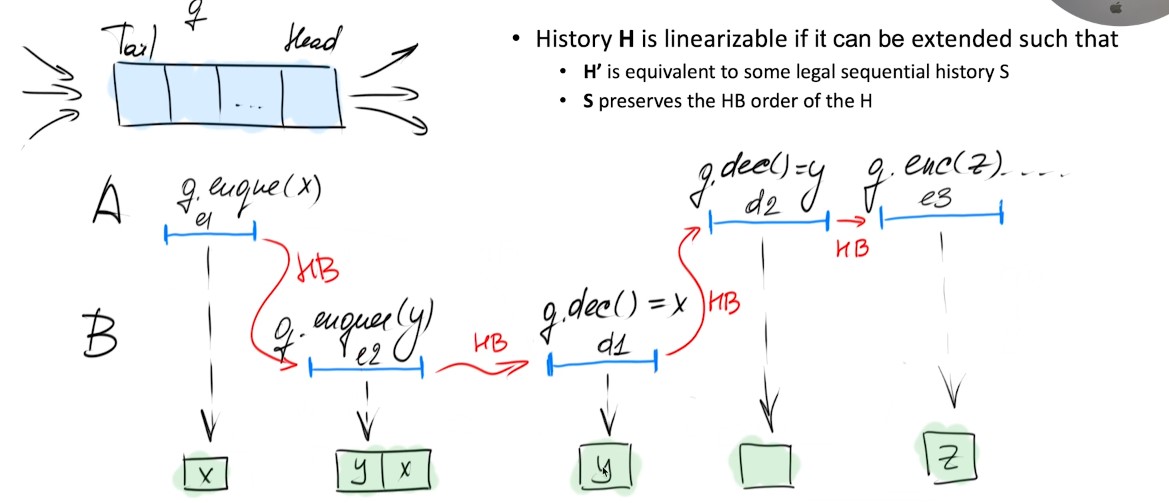 q
Tail Head
...
• History H is linearizable if it can be extended such that
• H’ is equivalent to some legal sequential history S
• S preserves the HB order of the H
A q.enque(x) q.deq()=y q.enq(z)....
e1 d2 e3
HB HB
B q.enque(y) HB q.deq()=x HB
e2 d1
x y x y z